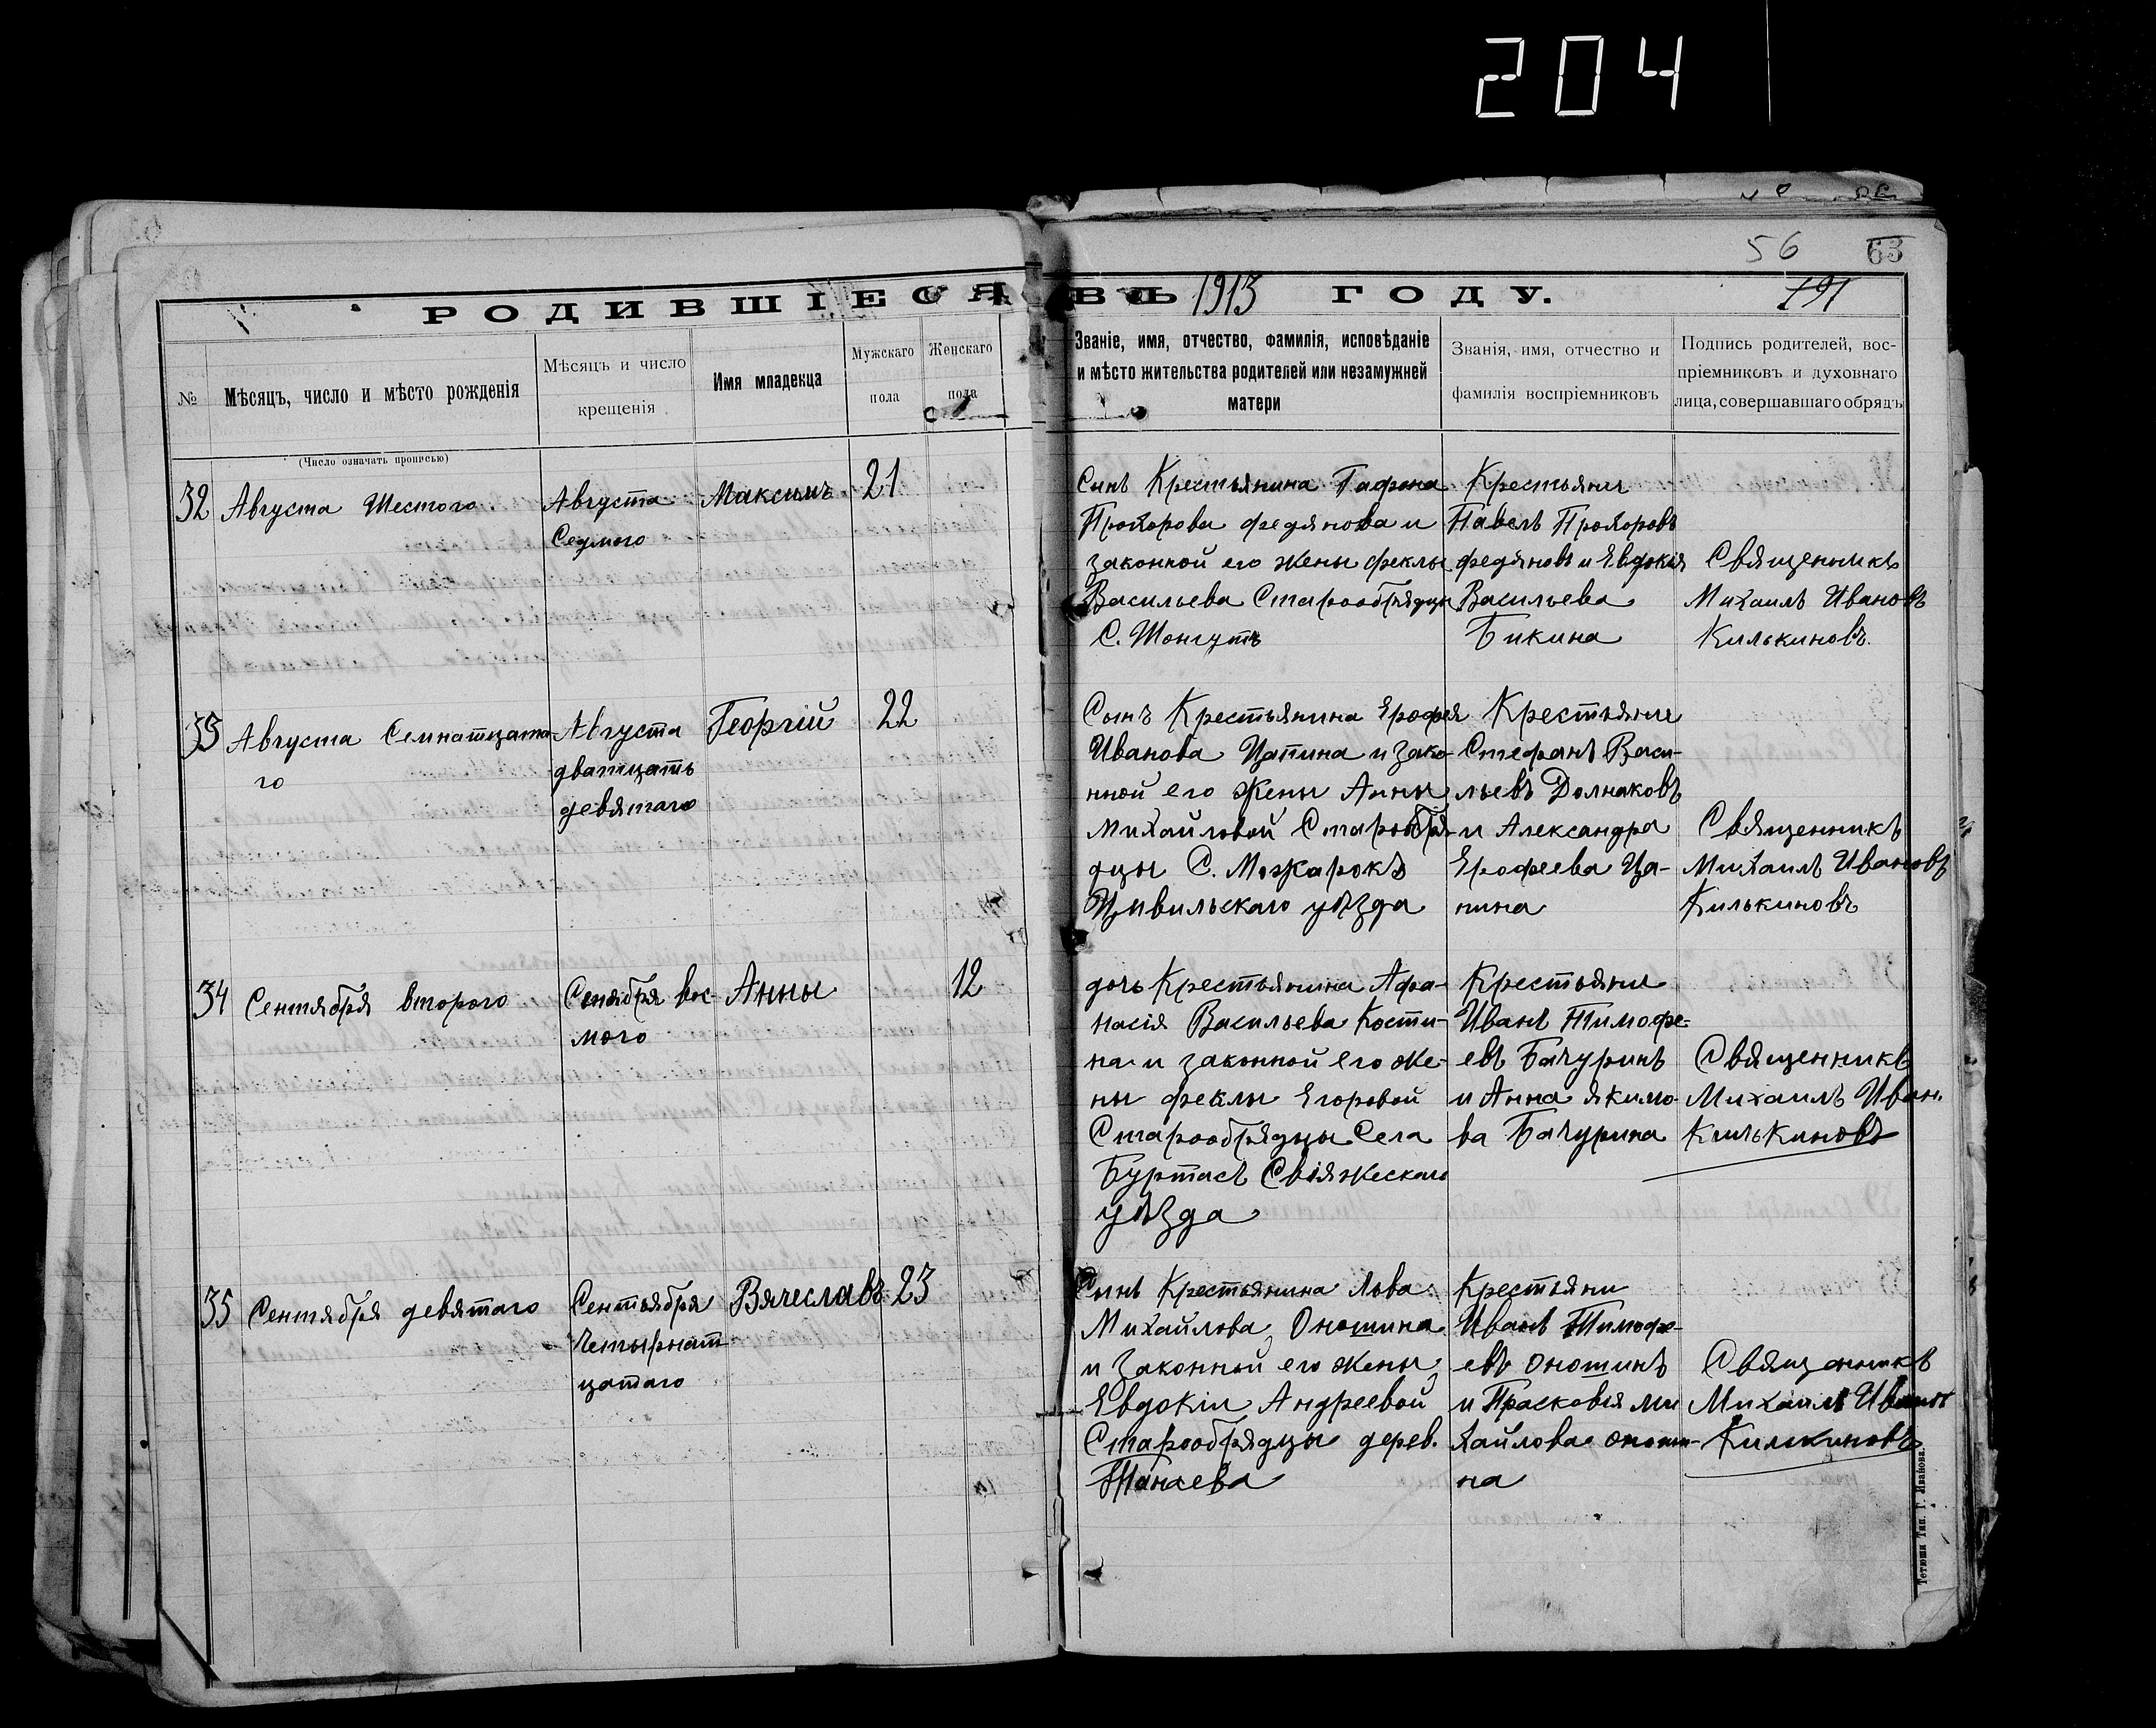 204
56 63
РОДИВШІЕСЯ ВЪ 1913 ГОДУ.
191
№
Мѣсяцъ, число и мѣсто рожденія
(Число означать прописью)
Мѣсяцъ и число
крещенія
Имя младенца
Мужскаго
пола
Женскаго
пола
Званіе, имя, отчество, фамилія, исповѣданіе
и мѣсто жительства родителей или незамужней
матери
Званія, имя, отчество и
фамилія воспріемниковъ
Подпись родителей, вос-
пріемниковъ и духовнаго
лица, совершавшаго обрядъ
32
Августа Шестого
Августа
Седмого
Максимъ
21
Сынъ Крестьянина
Прохорова федянова и
законной его жены феклы
Васильева Старообрядцы
С. Шонгутъ
Крестьяни
Павелъ Прохоровъ
федяновъ и Евдокія
Васильева
Бикина
Священникъ
Михаилъ Ивановъ
Килькиновъ.
33
Августа Семнатцата-
го
Августа
дватцать
девятаго
Георгій
22
Сынъ Крестьянина Ерофея
Иванова Цапина и зако-
нной его жены Анны
Михайловой Старообря-
дцы С. Можарокъ
Цивильскаго уѣзда
Крестьяни
Стефанъ Васи-
льевъ Долнаковъ
и Александра
Ерофеева Ца-
пина
Священникъ
Михаилъ Ивановъ
Килькиновъ
34
Сентября второго
Сентября вос-
мого
Анны
12
дочь Крестьянина Афа-
насія Васильева Кости-
на и законной его же-
ны феклы Егоровой
Старообрядцы Села
Буртасъ Свіяжескаго
уѣзда
Крестьяни
Иванъ Тимофе-
евъ Бачуринъ
и Анна Якимо-
ва Бачурина
Священникъ
Михаилъ Иван.
Килькиновъ
35
Сентября девятаго
Сентьября
Четырнат
цатаго
Вячеславъ
23
Сынъ Крестьянина Льва
Михайлова Оношина
и Законной его жены
Евдокіи Андреевой
Старообрядцы дерев.
Танаева
Крестьяни
Иванъ Тимофе-
евъ Оношинъ
и Прасковія Ми
хайлова Оноши-
на
Священникъ
Михаилъ Ивановъ
Килькиновъ
Тетюши Тип. Г. Иванова.